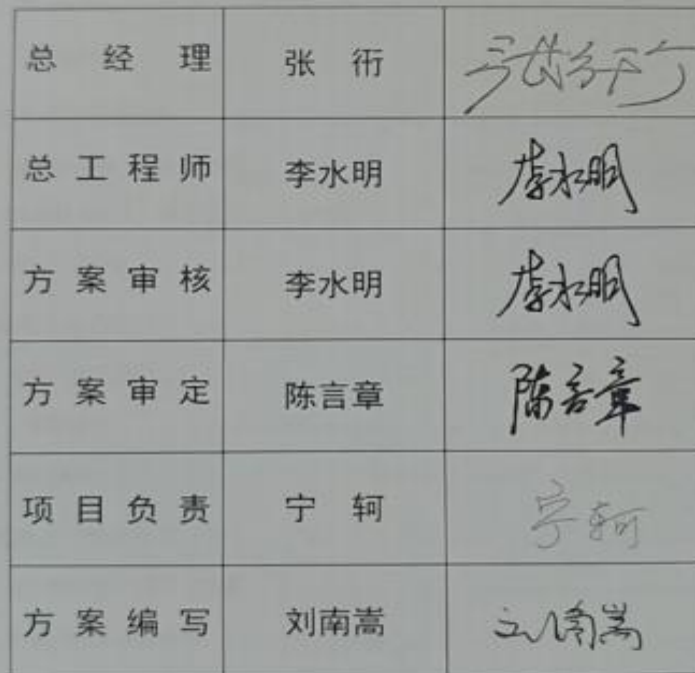 总经理 张衎 张衎
总工程师 李水明 李水明
方案审核 李水明 李水明
方案审定 陈言章 陈言章
项目负责 宁轲 宁轲
方案编写 刘南嵩 刘南嵩